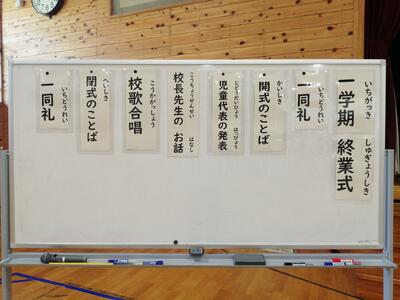 いちがっき
一学期
しゅぎょうしき
終業式
いちどうれい
一同礼
かいしき
開式のことば
じどうだいひょう はっぴょう
児童代表の発表
こうちょうせんせい はなし
校長先生の お話
こうかがっしょう
校歌合唱
へいしき
閉式のことば
いちどうれい
一同礼